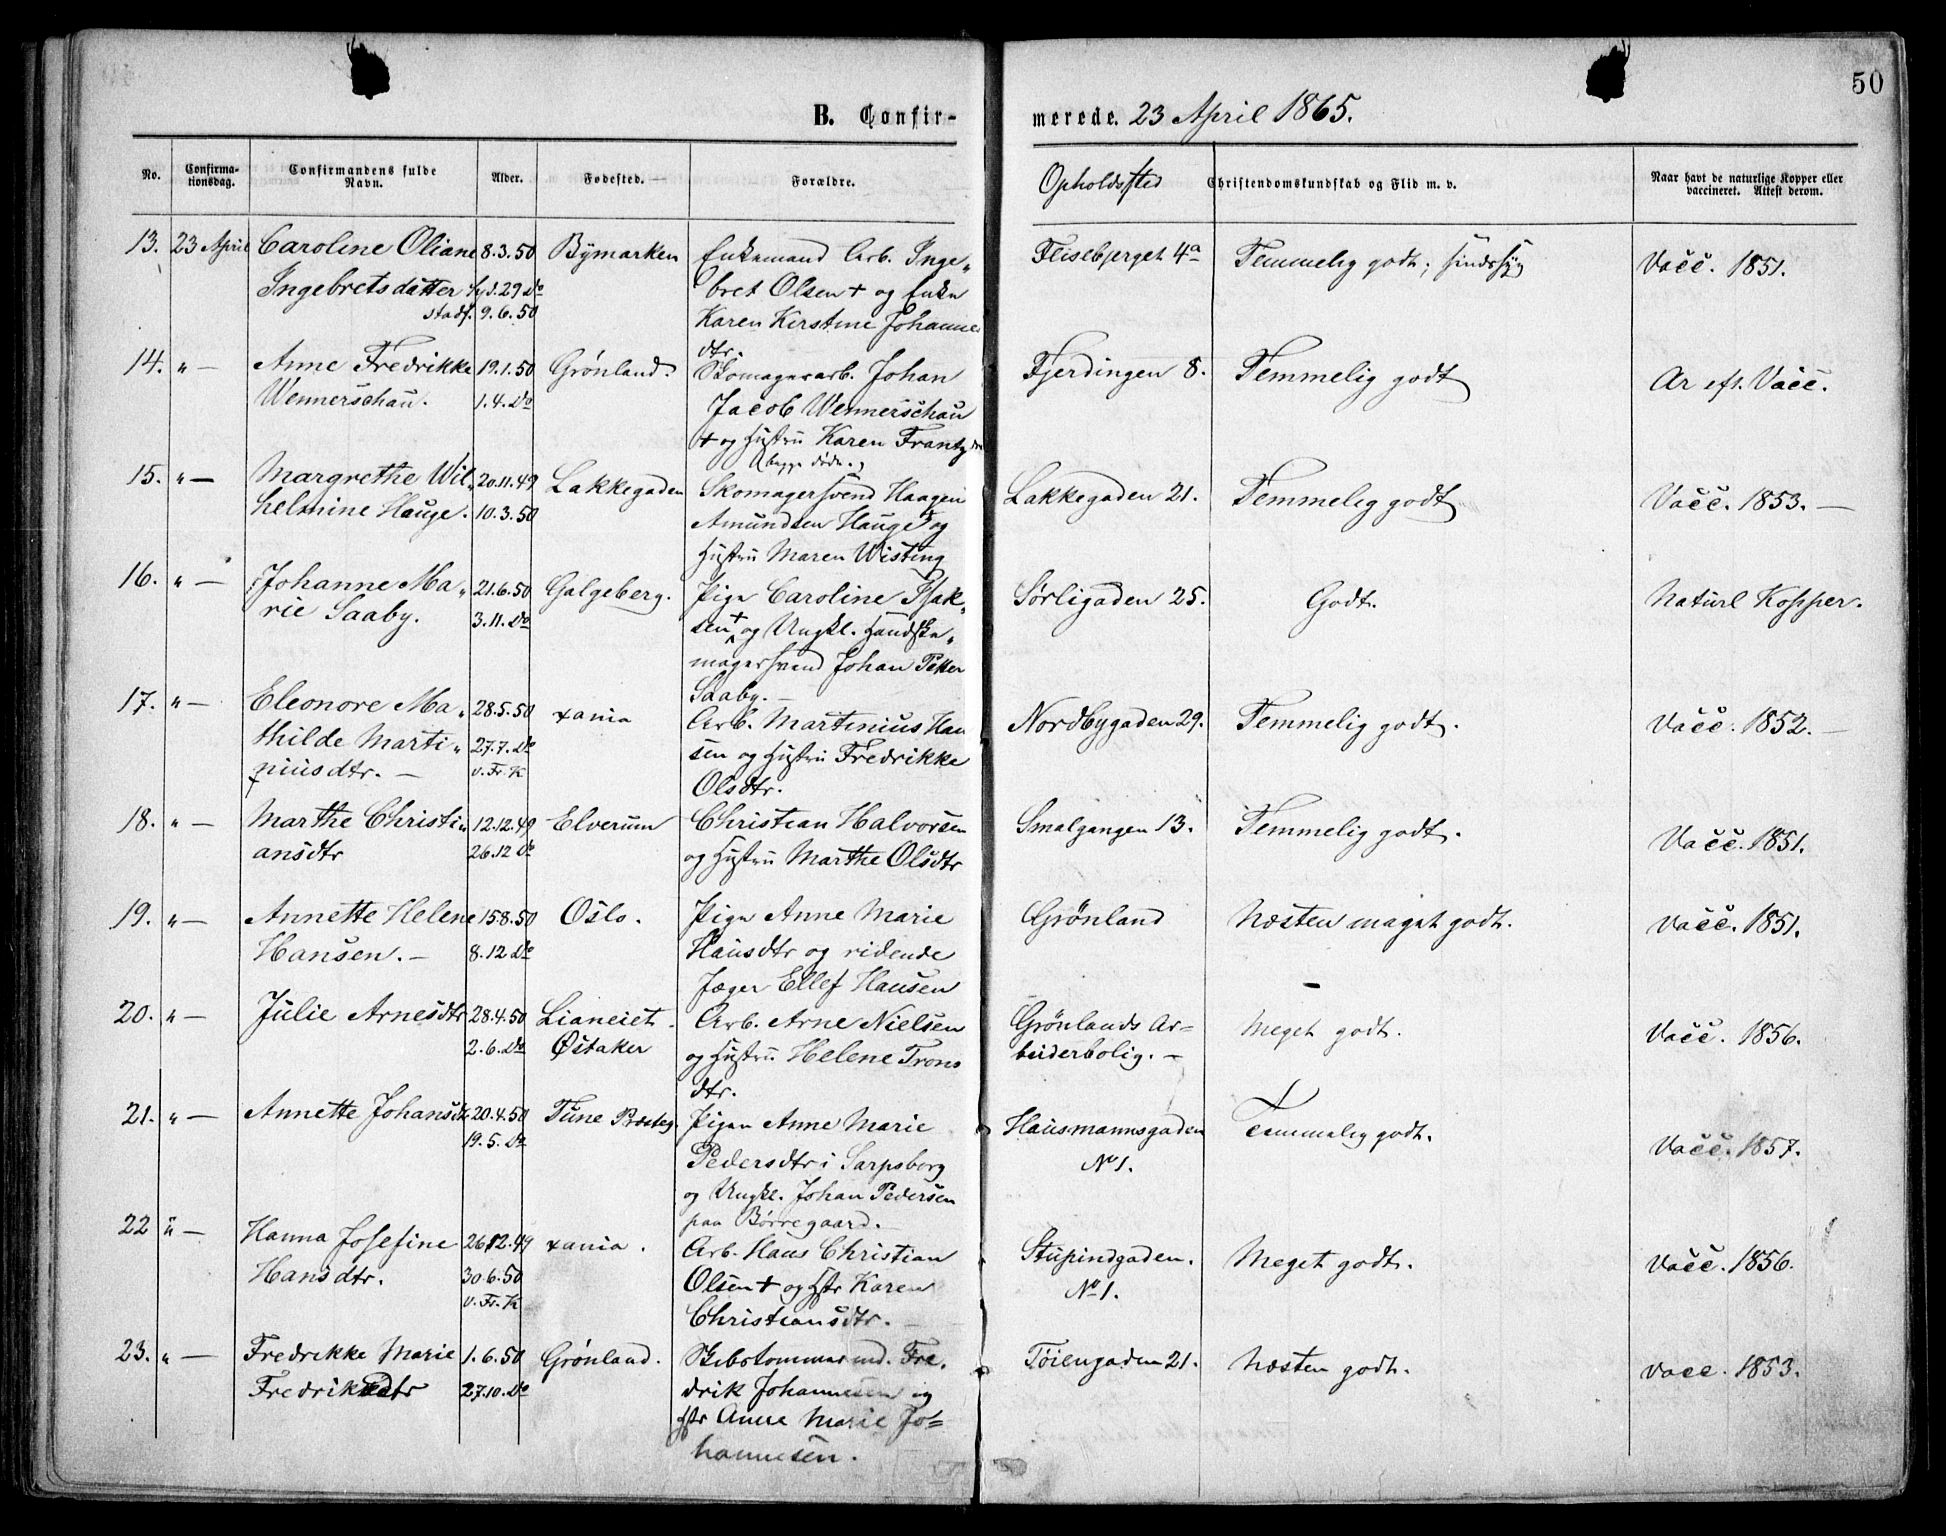 50
B. Confirmerede. 23 April 1865.
No. Confirmationsdag. Confirmandens fulde Navn. Alder. Fødested. Forældre. Opholdssted Christendomskundskab og Flid m. v. Naar havt de naturlige Kopper eller vaccineret. Attest derom.
13. 23 April Caroline Oliane 8.3.50 Bymarken Enkemand Arb. Inge„ Fliseberget 4a Temmelig godt; sindssyg Vacc. 1851.
Ingebretsdatter 29 Do bret Olsen + og Enke
stadf. 9.6.50 Karen Kirstine Johanne
dtr.
14. „ — Anne Fredrikke 19.1.50 Grønland. Skomagerarb. Johan Fjerdingen 8. Temmelig godt Ar eft. Vacc.
Wennerschau. 1.4. Do Jacob Wennerschau
+ og Hustru Karen Frantz dtr
(begge døde.)
15. „ — Margrethe Wil„ 20.11.49 Lakkegaden Skomagersvend Haagen Lakkegaden 21. Temmelig godt Vacc. 1853. —
helmine Hauge. 10.3.50 Amundsen Hauge og
Hustru Maren Wisting
16. „ — Johanne Ma„ 21.6.50 Galgeberg. Pige Caroline Isak„ Sørligaden 25. Godt. Naturl Kopper.
rie Saaby. 3.11. Do sen + og Ungkl. Handske„
magersvend Johan Peter
Saaby. —
17. „ — Eleonore Ma„ 28.5.50 xania Arb. Martinius Han Nordbygaden 29. Temmelig godt. Vacc. 1852. —
thilde Marti„ 27.7. Do sen og Hustru Fredrikke
niusdtr. — v. Fr. K Olsdtr.
18. „ — Marthe Christi„ 12.12.49 Elverum Christian Halvorsen Smalgangen 13. Temmelig godt. Vacc. 1851.
ansdtr 26.12 Do og Hustru Marthe Olsdtr
19. „ — Annette Helene 15.8.50 Oslo. Pige Anne Marie Grönland Næsten meget godt. Vacc. 1851.
Hansen. — 8.12 Do Hansdtr og ridende
Jæger Ellef Hansen
20. „ — Julie Arnesdtr 28.4.50 Lianeiet. Arb. Arne Nielsen Grönlands Ar= Meget godt. Vacc. 1856.
2.6. Do Østaker og Hustru Helene Trons beiderbolig. —
dtr.
21. „ — Annette Johansdtr 20.4.50 Tune Præsteg. Pigen Anne Marie Hausmannsgaden Temmelig godt. Vacc. 1857.
19.5. Do Pedersdtr i Sarpsborg No 1.
og Ungkl. Johan Pedersen
paa Børregaard. —
22 „ — Hanna Josefine 26.12.49 xania. Arb. Hans Christian Stupindgaden. Meget godt. Vacc. 1856.
Hansdtr. 30.6.50 Olsen + og Hstr Karen No 1.
v. Fr. K Christiansdtr. —
23. „ — Fredrikke Marie 1.6.50 Grønland. Fre„ Töiengaden 21. Næsten godt. Vacc. 1853.
Fredriksdtr 27.10. Do drik Johannesen og
Hstr Anne Marie Jo=
hannesen.